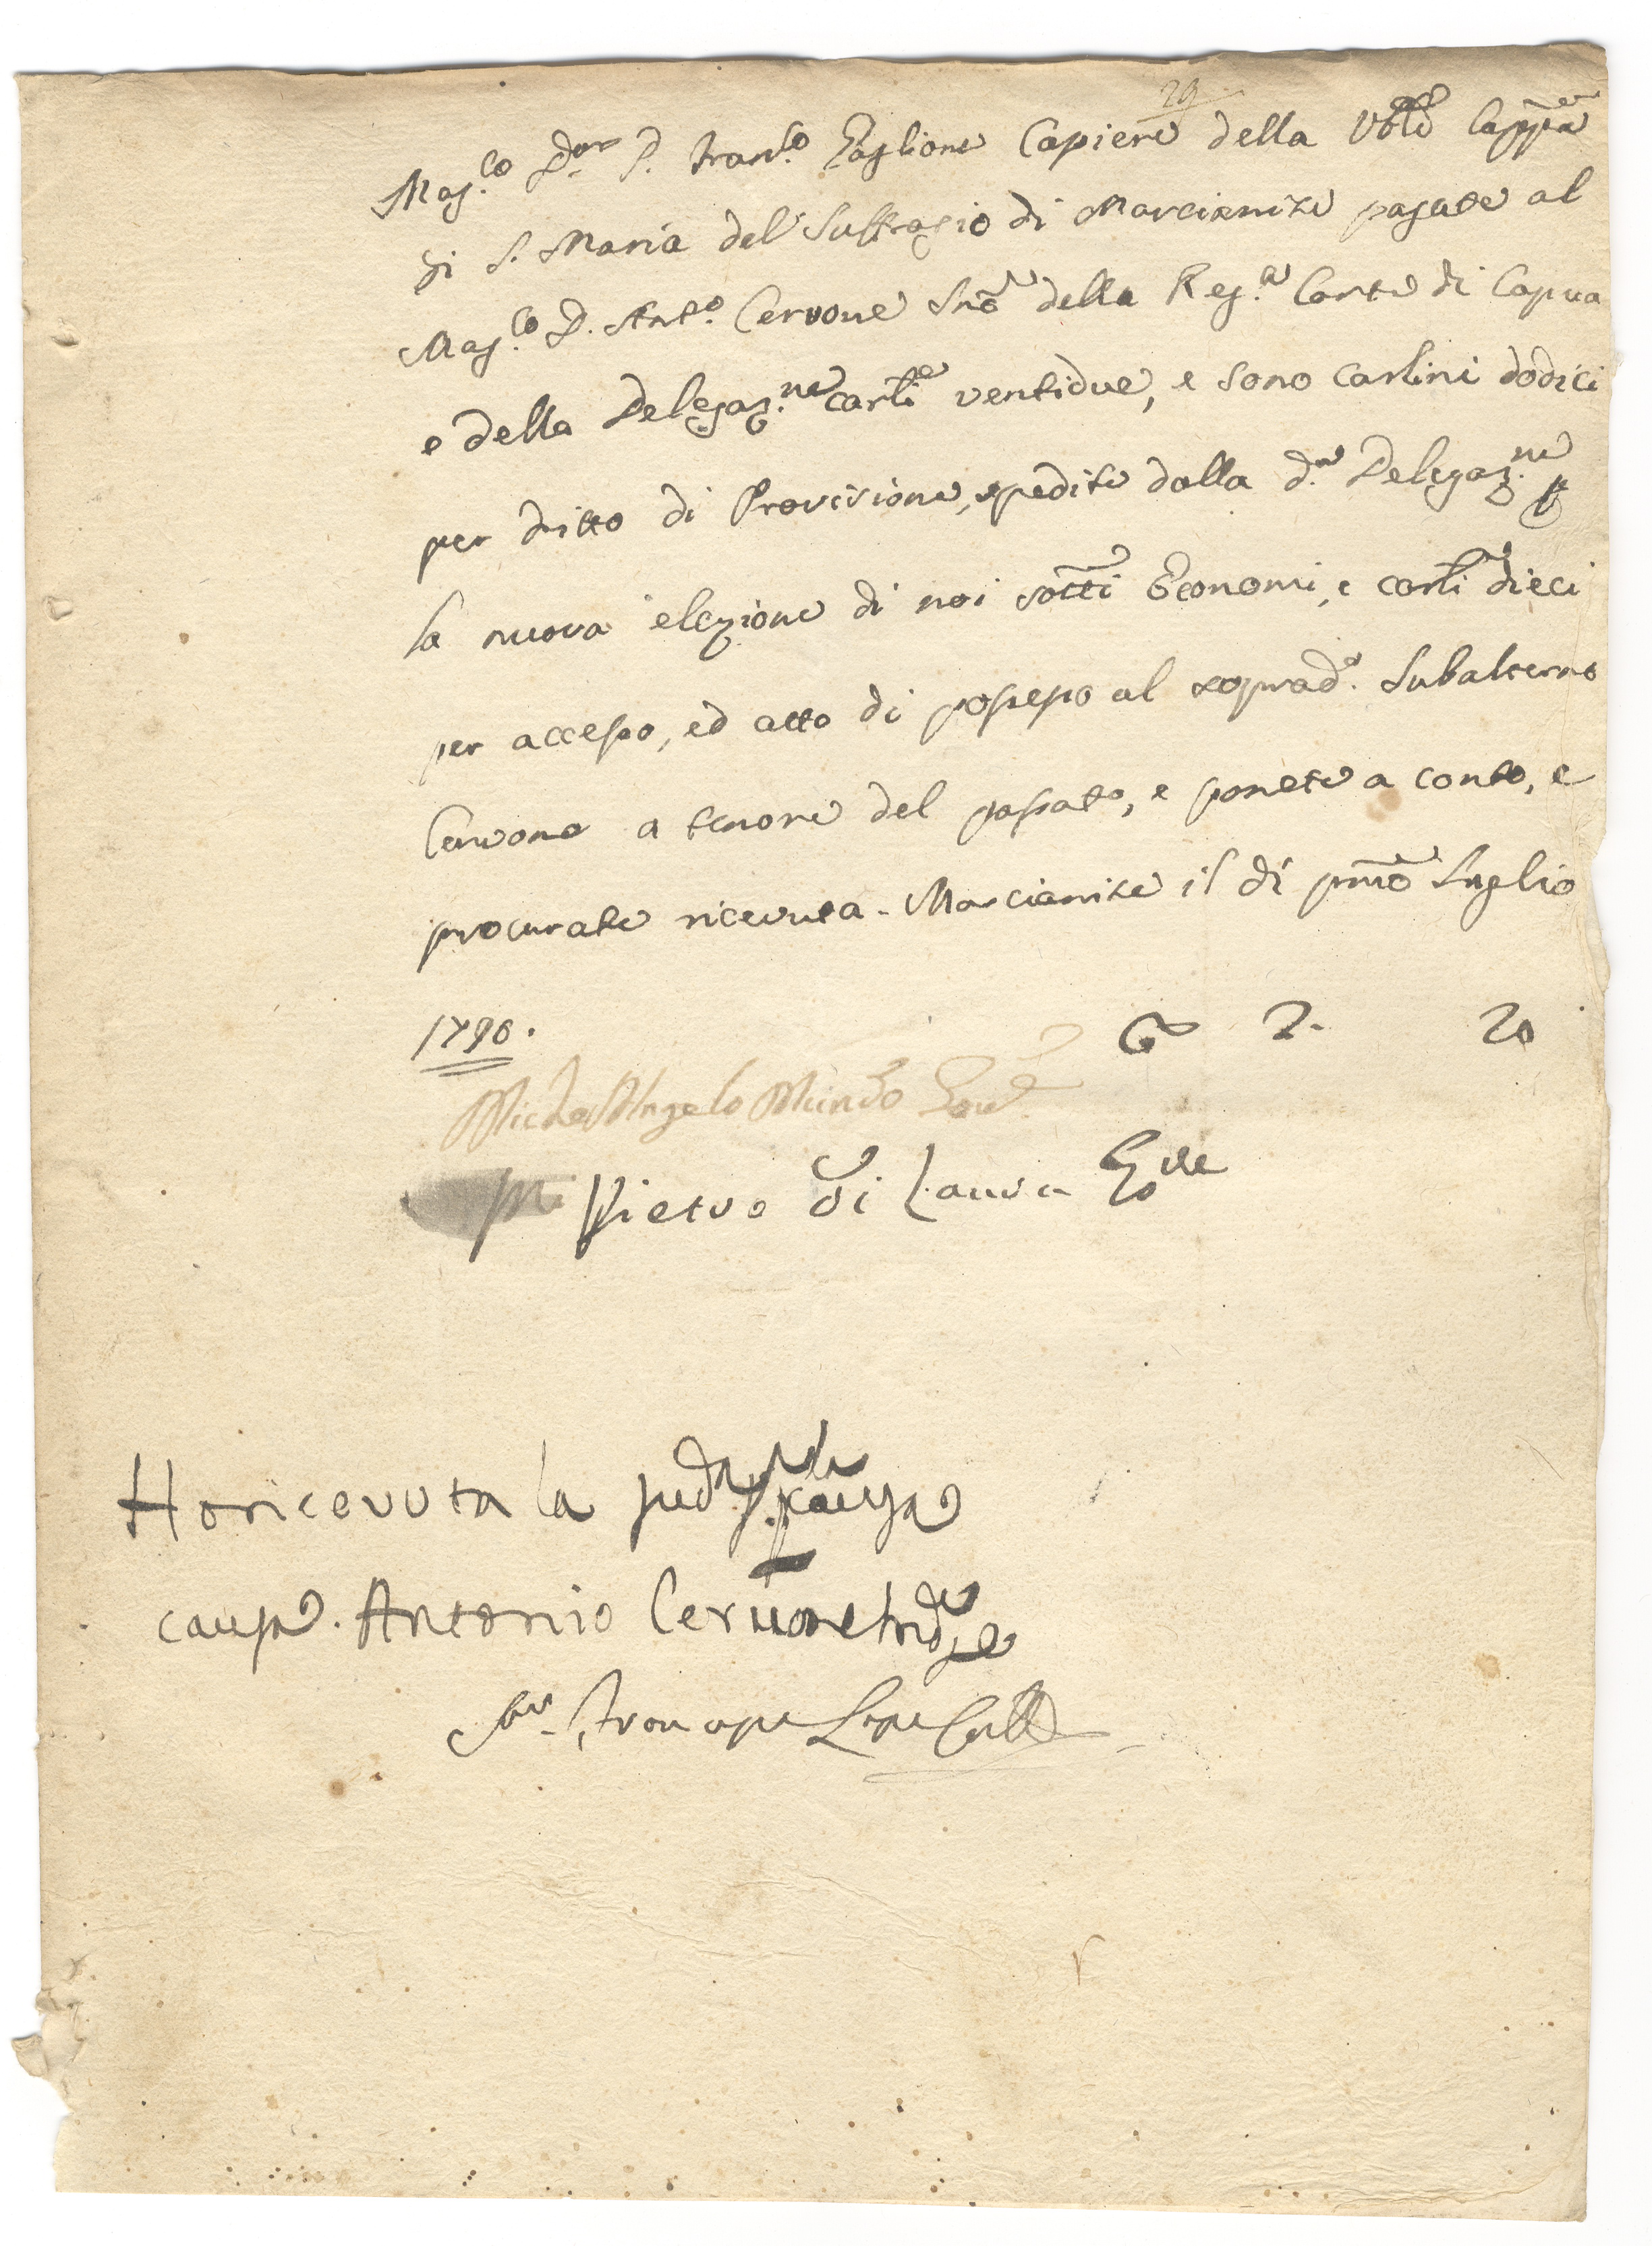 29
Mag.co D.or D. Fran.co Taglione Casiere della V.ble Capp.a
di S. Maria del Suffragio di Marcianise pagate al
Mag.co D. Ant.o Cervone della Reg.a Corte di Capua
e della Delegaz.ne carlì ventidue, e sono carlini dodici
per dritto di Provisione, spedite dalla d.a Delegaz.ne p
la nuova elezione di noi sotti Economi, e carlì dieci
per accesso, ed atto di possesso al soprad.o Subalterno
Cervone a tenore del passato, e ponete a conto, e
procurate ricevuta. Marcianise il dì pmo Luglio
1790. 2. 20
Michel'Angelo Mundo
Pietro di Lauro
Ho ricevuta la
Antonio Cervone